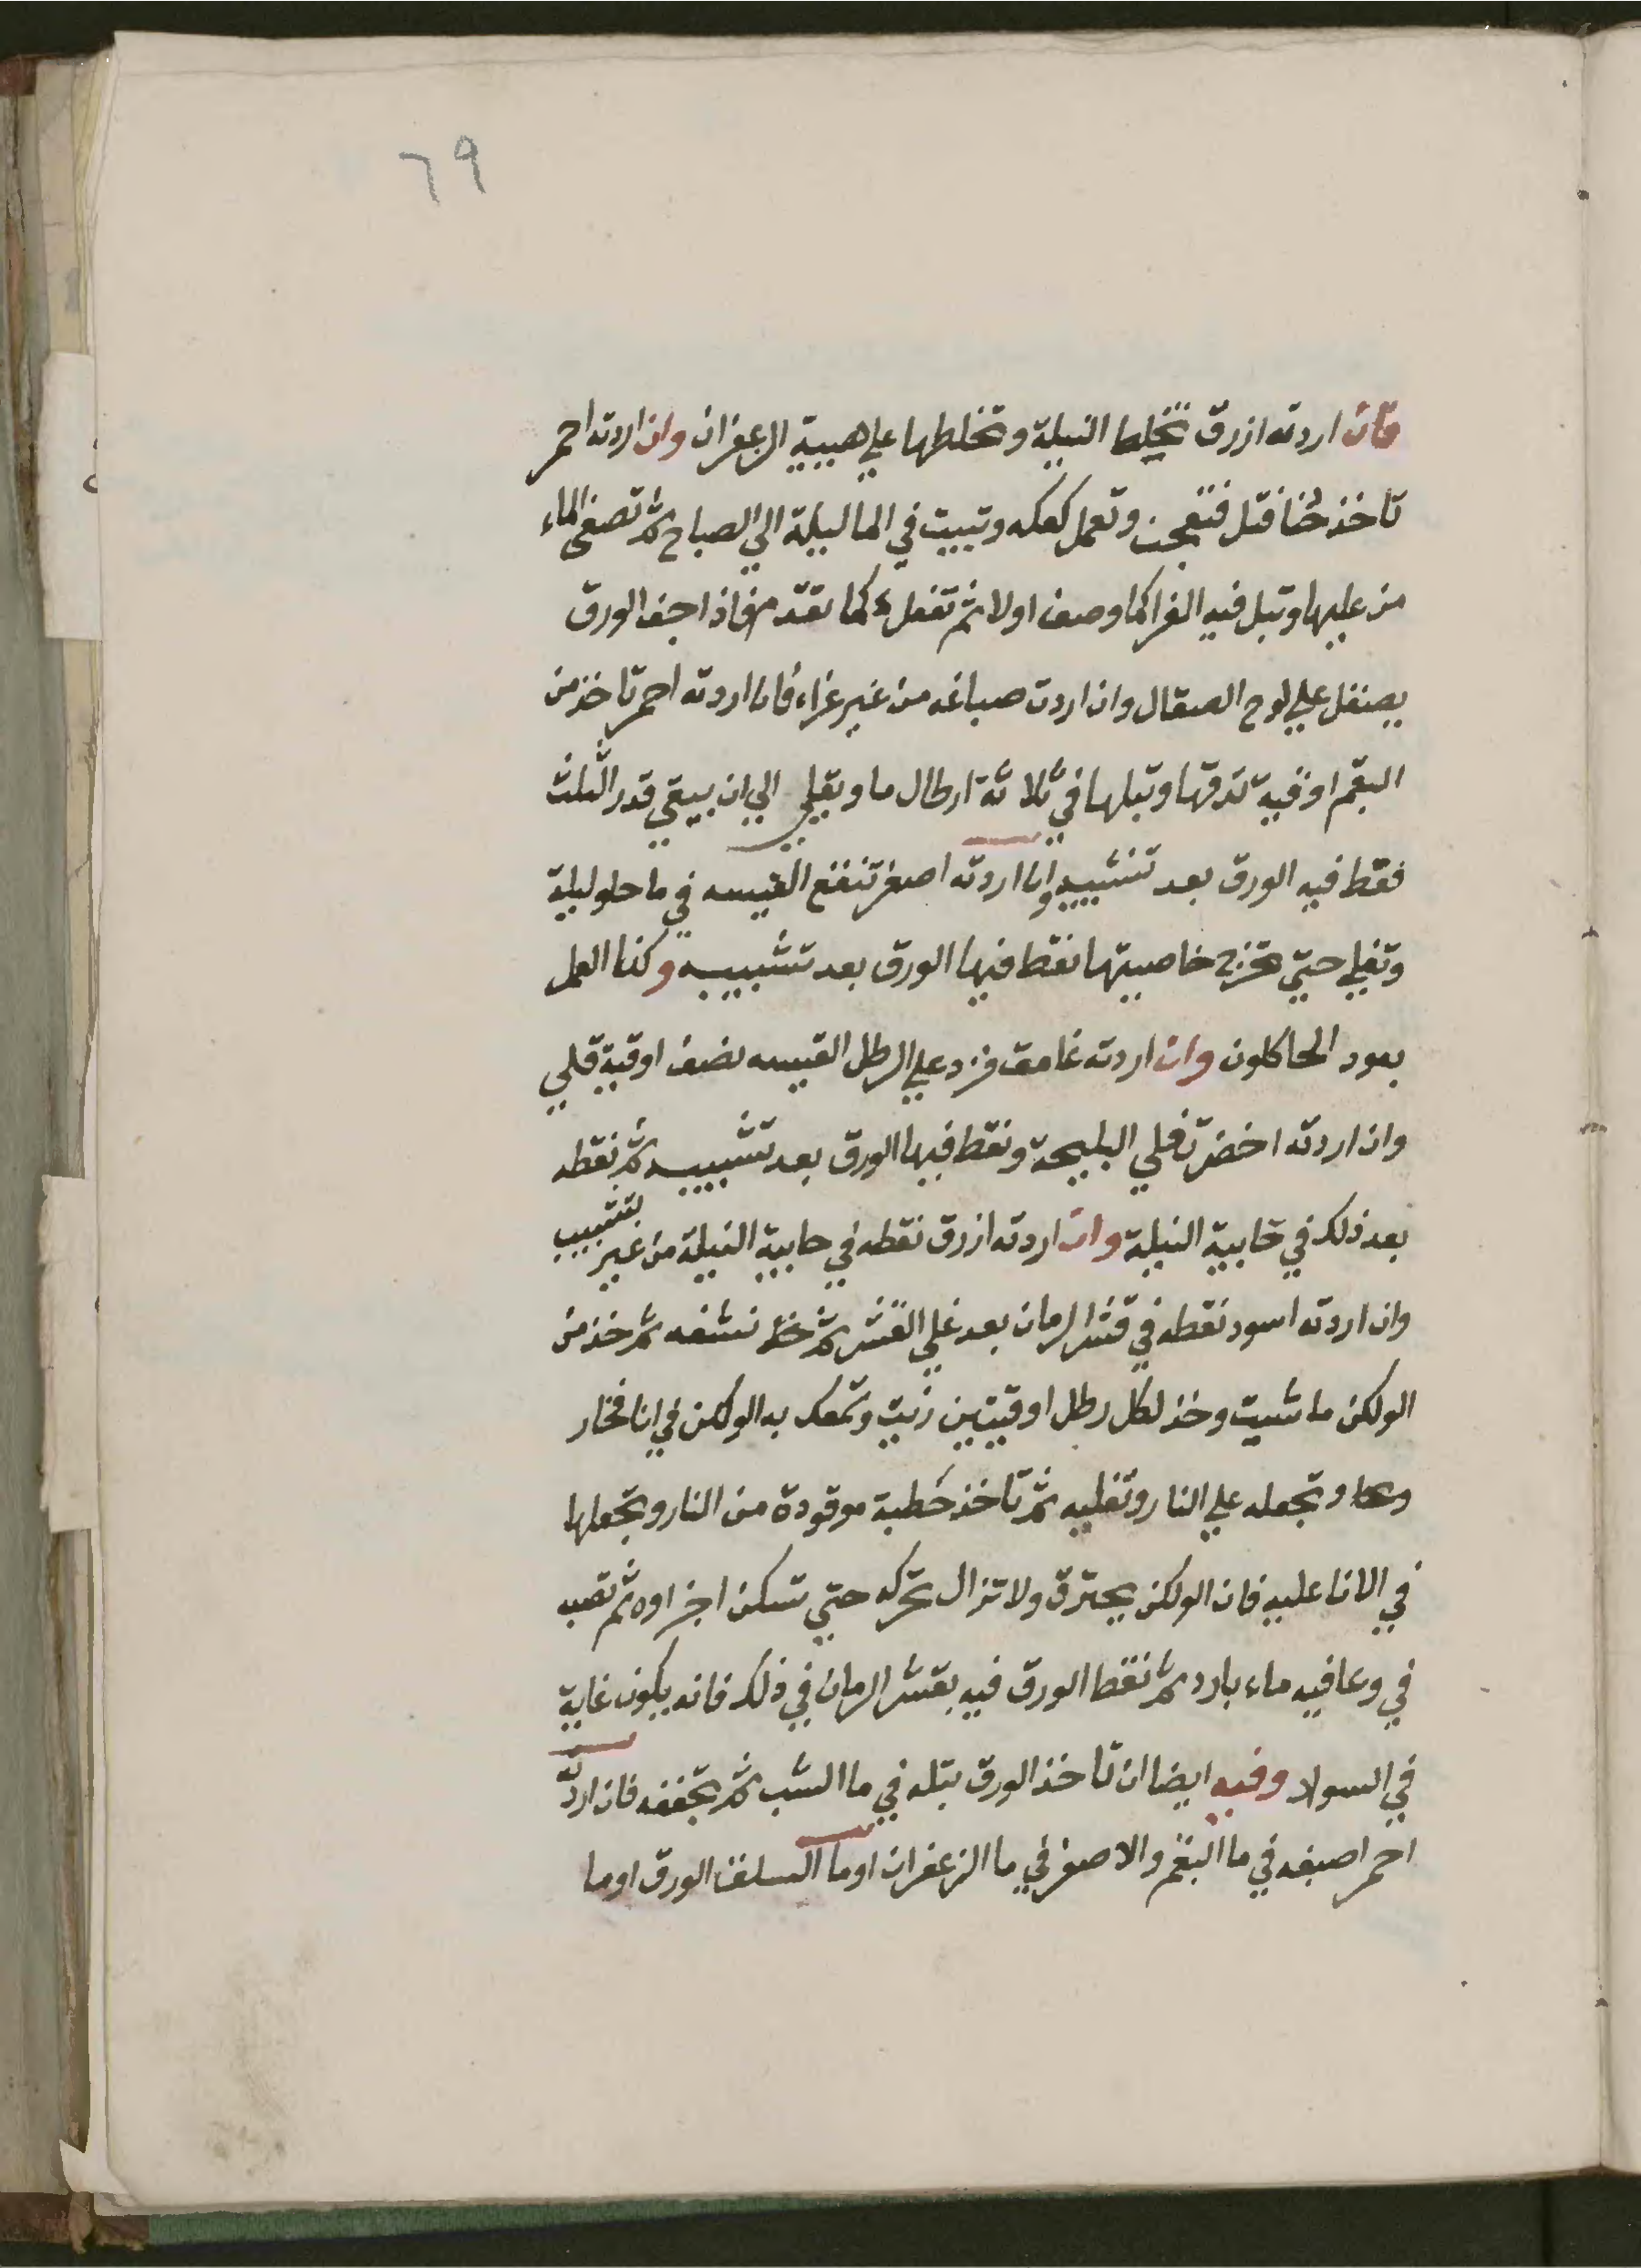 ٦٩
فان اردته ازرق تخلط النيلة وتخلطها علي هيية الزعفران وان اردته احمر
تاخذ حنا قتل فتعجن وتعمل كعكه وتبيت في الما ليلة الي الصباح ثم تصفي الماء
من عليها وتبل فيه الغرا كما وصف اولا ثم تفعل كما تقدم فاذا جف الورق
يصقل علي لوح الصقال وان اردت صباغه من غير غراء فان اردته احمر تاخذ من
البقم اوقية تدقها وتبلها في ثلاثة ارطال ما وتغلي الي ان يبقي قدر الثلث
فقط فيه الورق بعد تشبيبه وان اردته اصفر تنقع القيسه في ما حلو ليلة
وتغلي حتي تخرج خاصيتها نقط فيها الورق بعد تشبيبه وكذا العمل
بعود الحاكلون وان اردته غامق فزد علي الرطل القيسه نصف اوقية قلي
وان اردته اخضر تغلي البليحة ونقط فيها الورق بعد تشبيبه ثم نقطه
بعد ذلك في خابية النيلة وان اردته ازرق نقطه في خابية النيلة من غير تشبيب
وان اردته اسود نقطه في قشر الرمان بعد غلي القشر ثم نشفه ثم خذ من
الولكن ما شيت وخذ لكل رطل اوقيتين زيت وتمعك به الولكن في انا فخار
وتجعله علي النار وتغليه ثم تاخذ حطبة موقودة من النار وتجعلها
في الانا عليه فان الولكن يحترق ولا تزال تحركه حتي تسكن اجزاوه ثم تصب
في وعا فيه ماء بارد ثم نقط الورق فيه بقشر الرمان في ذلك فانه يكون غاية
في السواد وفيه ايضا ان تاخذ الورق تبله في ما الشب ثم تجففه فان اردته
احمر اصبغه في ما البقم والاصفر في ما الزعفران او ما السلق الورق او ما